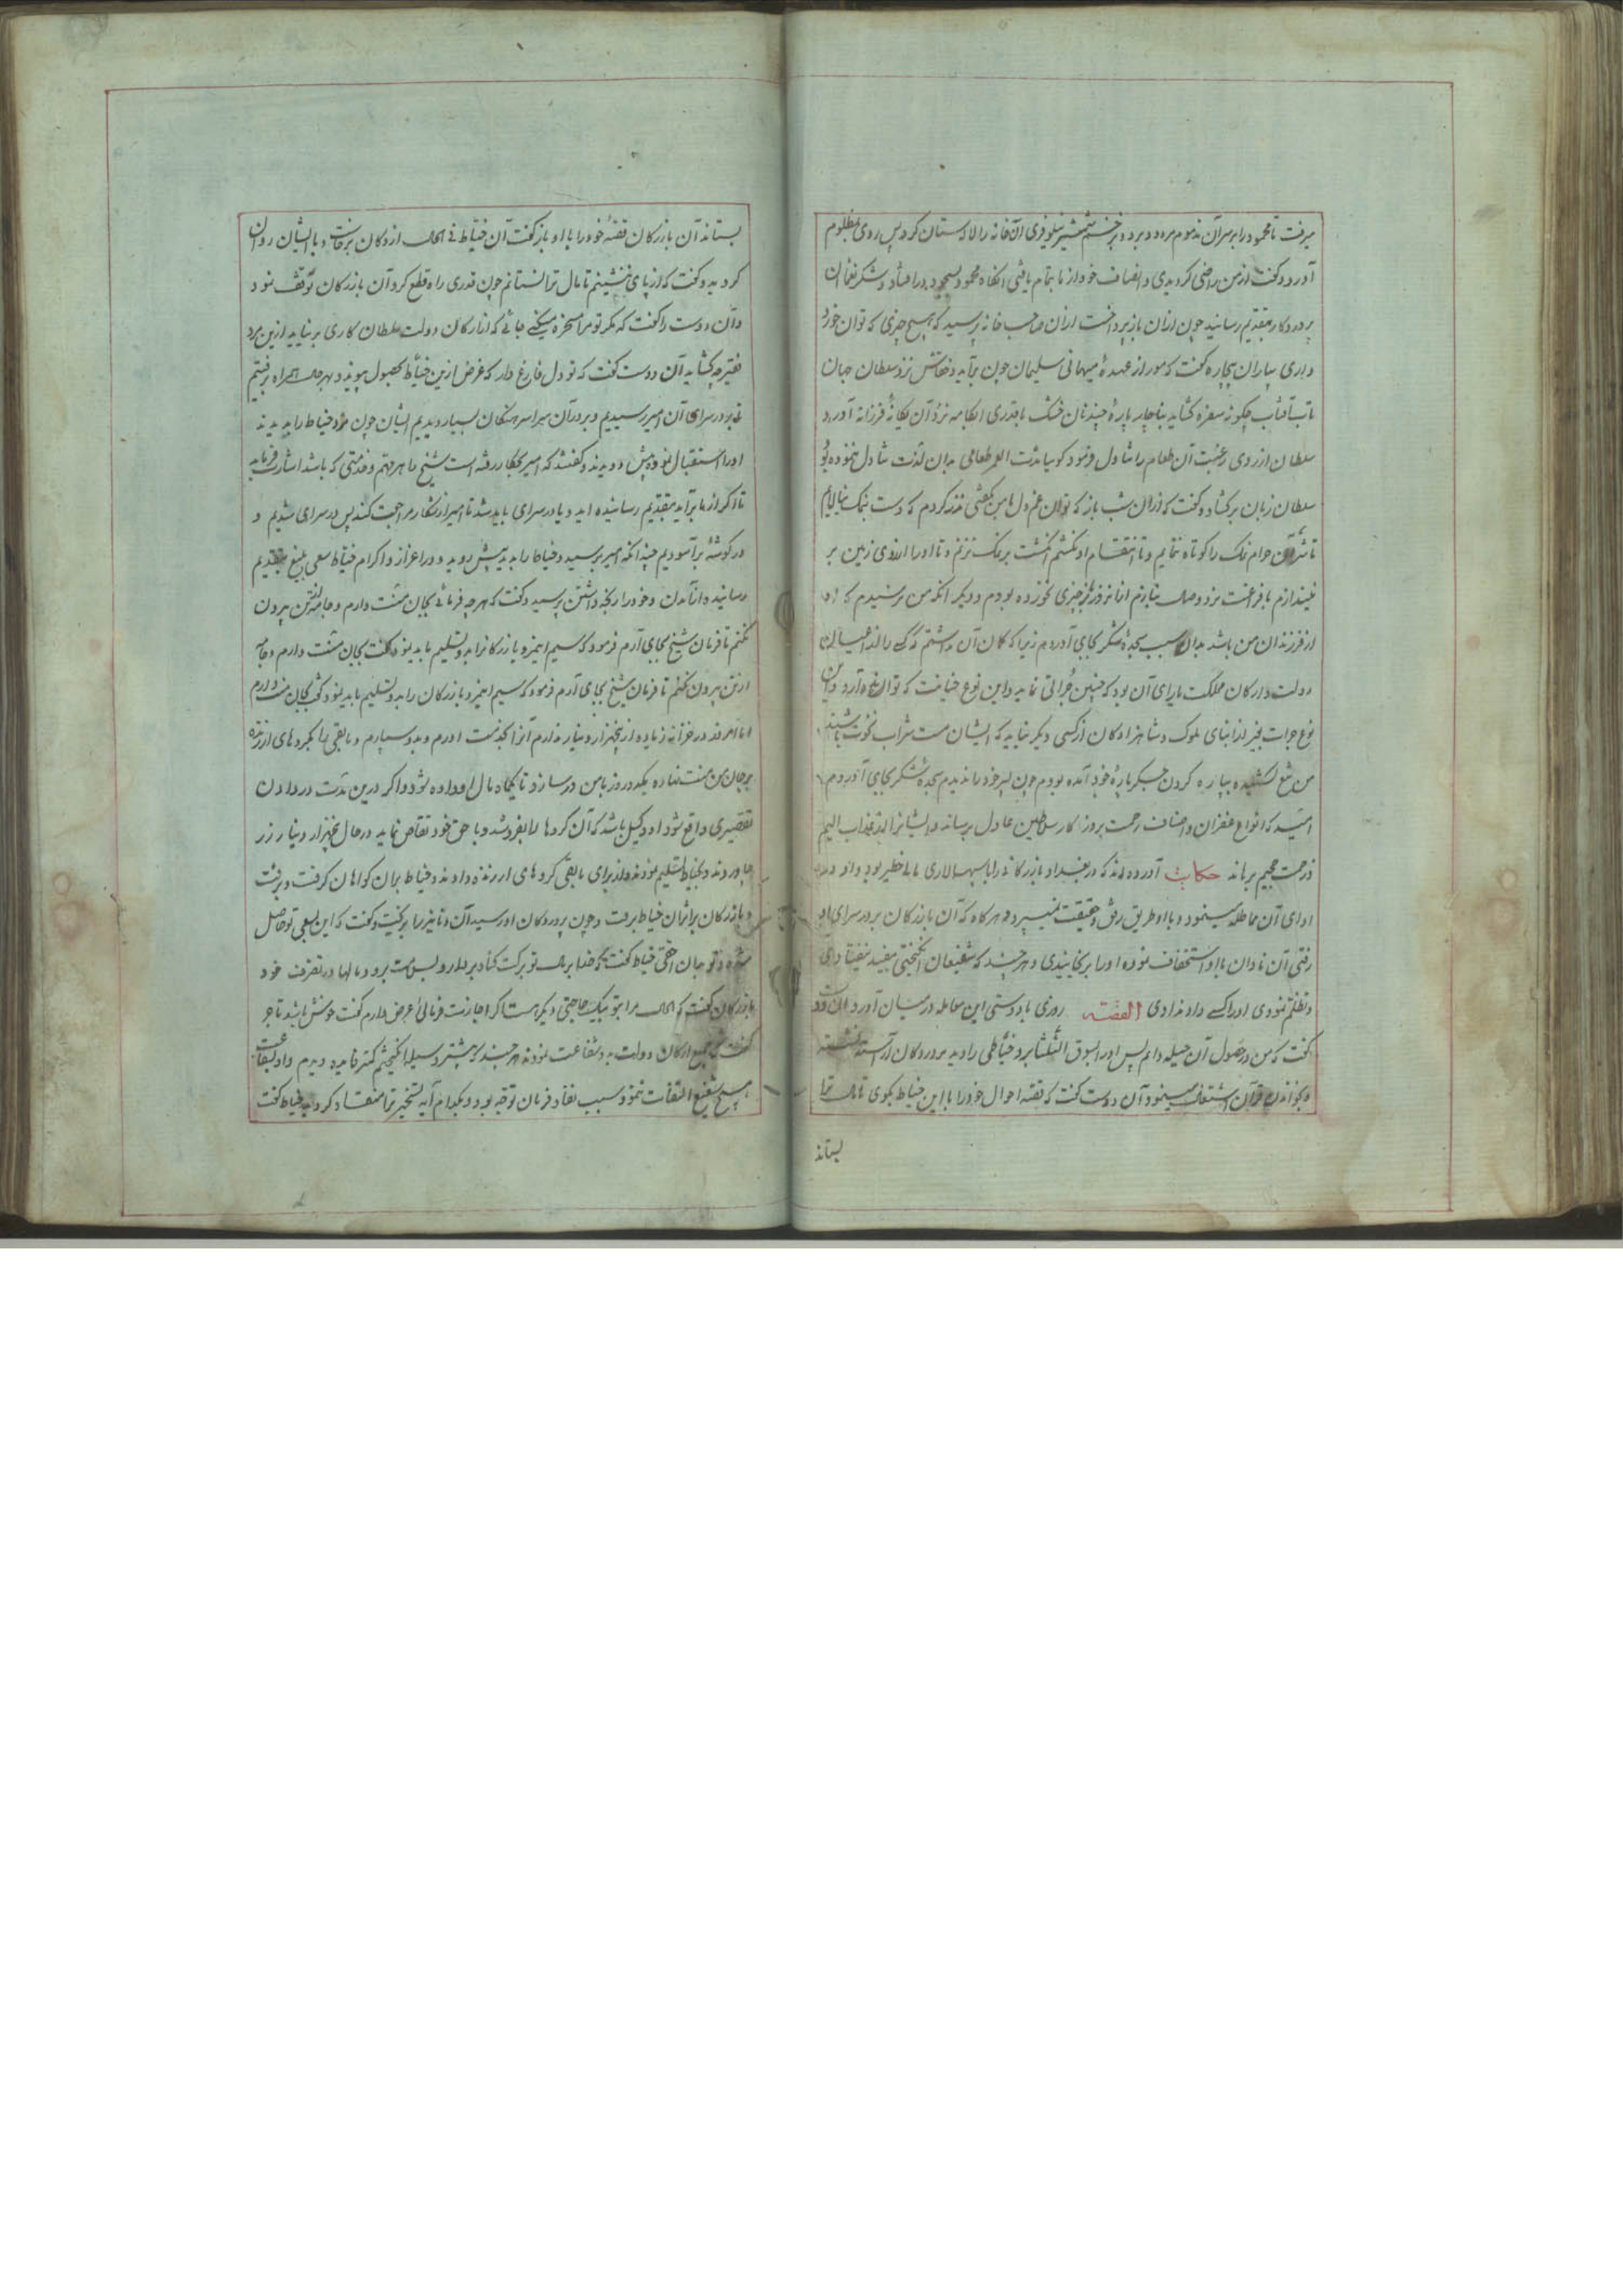 میرفت تا محمود را بر سر آن مذموم مردود برد و بزخم شمشیر نیلوفری آن خانه را لاله ستان کرد پس روی بمظلوم
آورد و گفت از من راضی کردیدی و انصاف خود از ما بتمام یافتی انکاه محمود بسجود در افتاد و شکر
پروردکار بتقدیم رسانید چون ازان باز پرداخت ازان صاحب خانه پرسید که هیچ چیزی که توان خورد
داری بیار آن بیچاره گفت که مور از عهدهٔ میهمانی سلیمان چون برآید و خفاش نزد سلطان جهان
تاب آفتاب چگونه سفره کشاید بناچار پارهٔ چند نان خشک با قدری آبکامه نزد آن یکانهٔ فرزانه آورد
سلطان از روی رغبت آن طعام را تناول فرمود کوییا مدت العمر طعامی بدان لذت تناول ننموده بود
سلطان زبان برکشاد و گفت که ازان شب باز که توان غم دل با من بگفتی نذر کردم که دست بنمک نیالایم
تا شر آن حرام نمک را کوتاه ننمایم و تا انتقام او نکشم انکشت بر نمک نزنم و تا او را از روی زمین بر
نیندازم با فراغت نرد وصال نبازم اما نه روز چیزی نخورده بودم و دیکر انکه من ترسیدم که او
از فرزندان من باشد بدان سبب سجدهٔ شکر بجای آوردم زیرا که کمان آن داشتم که کسی را از اعیان
دولت و ارکان مملکت یارای آن بود که چنین جراتی نماید و این نوع خیانت که تواند آورد و این
نوع جرات بغیر از ابنای ملوک و شاهزادکان از کسی دیکر نیاید که ایشان مست شراب نخوت باشند
من تیغ کشیده بپاره کردن جکر پارهٔ خود آمده بودم چون پسر خود را ندیدم سجدهٔ شکر بجای آوردم
امید که انواع غفران و اصناف رحمت بروزکار سلاطین عادل برساند و ایشانرا از عذاب الیم
و زحمت جحیم برهاند حکایت آورده اند که در بغداد بازرکانی را با سپهسالاری مالی خطیر بود و او در
ادای آن مماطله مینمود و با او طریق رفق و حقیقت نمیسپرد و هرکاه که آن بازرکان بر در سرای او
رفتی آن نادان با او استخفاف نموده او را برنجانیدی و هرچند که شفیعان انکیختی مفید نیفتادی
و تظلم نمودی او را کسی داد ندادی القصه روزی با دوستی این معامله در میان آورد آن دوست
گفت که من در حصول آن حیله دانم پس او را بسوق الثلثا برد خیاطی را دید بر در دکان آراسته نشسته
و بخواندن قرآن اشتغال مینمود آن دوست گفت که قصه احوال خود را با این خیاط بکوی تا مال ترا
بستاند
بستاند آن بازرکان قصهٔ خود را با او باز گفت آن خیاط فی الحال از دکان برخاست و با ایشان روان
کردید و گفت که از پای ننشینم تا مال ترا نستانم چون قدری راه قطع کرد آن بازرکان توقف نمود
و آن دوست را گفت که مکر تو مرا مسخره میکنی جائی که از ارکان دولت سلطان کاری بر نیاید ازین مرد
فقیر چه کشاید آن دوست گفت که تو دل فارغ دار که غرض ازین خیاط بحصول پیوندد بهر حال همراه برفتیم
تا بدر سرای آن امیر رسیدیم و بر در آن سرا سرهنکان بسیار دیدیم ایشان چون مرد خیاط را بدیدند
او را استقبال نموده پیش دویدند و گفتند که امیر بشکار رفته است شیخ را هر مهم و خدمتی که باشد اشارت فرماید
تا اکر از ما برآید بتقدیم رسانیده آید و یا در سرای باید شد تا امیر از شکار مراجعت کند پس در سرای شدیم و
در کوشهٔ برآسودیم چندانکه امیر برسید و خیاط را بدید پیش دوید و در اعزاز و اکرام خیاط سعی بلیغ بتقدیم
رسانید و از آمدن و خود را رنجه داشتن پرسید و گفت که هرچه فرمائی بجان منت دارم و جامه از تن بیرون
نکنم تا فرمان شیخ بجای آرم فرمود که سیم این مرد بازرکانرا بدو تسلیم باید نمود گفت بجان منت دارم و جامه
از تن بیرون نکنم تا فرمان شیخ بجای آرم فرمود که سیم این مرد بازرکان را بدو تسلیم باید نمود گفت بجان منت دارم
اما امروز در خزانه زیاده از پنجهزار دینار ندارم آنرا بخدمت آورم و بدو سپارم و باقی را کروهای ارزنده
بر جان من منت نهاده یکدو روز با من در سازد تا یکماه مال او داده شود و اکر درین مدت در دادن
تقصیری واقع شود او وکیل باشد که آن کروها را بفروشد و با حق خود تقاص نماید در حال پنجهزار دینار زر
بیاوردند و بخیاط تسلیم نمودند و از برای باقی کروهای ارزنده دادند و خیاط بران کواهان کرفت و برفت
و بازرکان بر اثر آن خیاط برفت و چون بر در دکان او رسید آن دنانیر را برکشید و گفت که این بسعی تو حاصل
شده و تو بدان احقی خیاط گفت که خدا بر مال تو برکت کناد بردار و بسلامت برو و مالها در تصرف خود
بازرکان گفت که الحال مرا بتو یک حاجتی دیکر هست اکر اجازت فرمائی عرض دارم گفت خوش باشد تاجر
گفت که جمیع ارکان دولت بدو شفاعت نمودند هر چند بیشتر وسیله انکیختم کمتر فایده دیدم و او بشفاعت
هیچ شفیع التفات ننمود سبب نفاذ فرمان تو چه بود و بکدام آیه تسخیر ترا منقاد کردید خیاط گفت